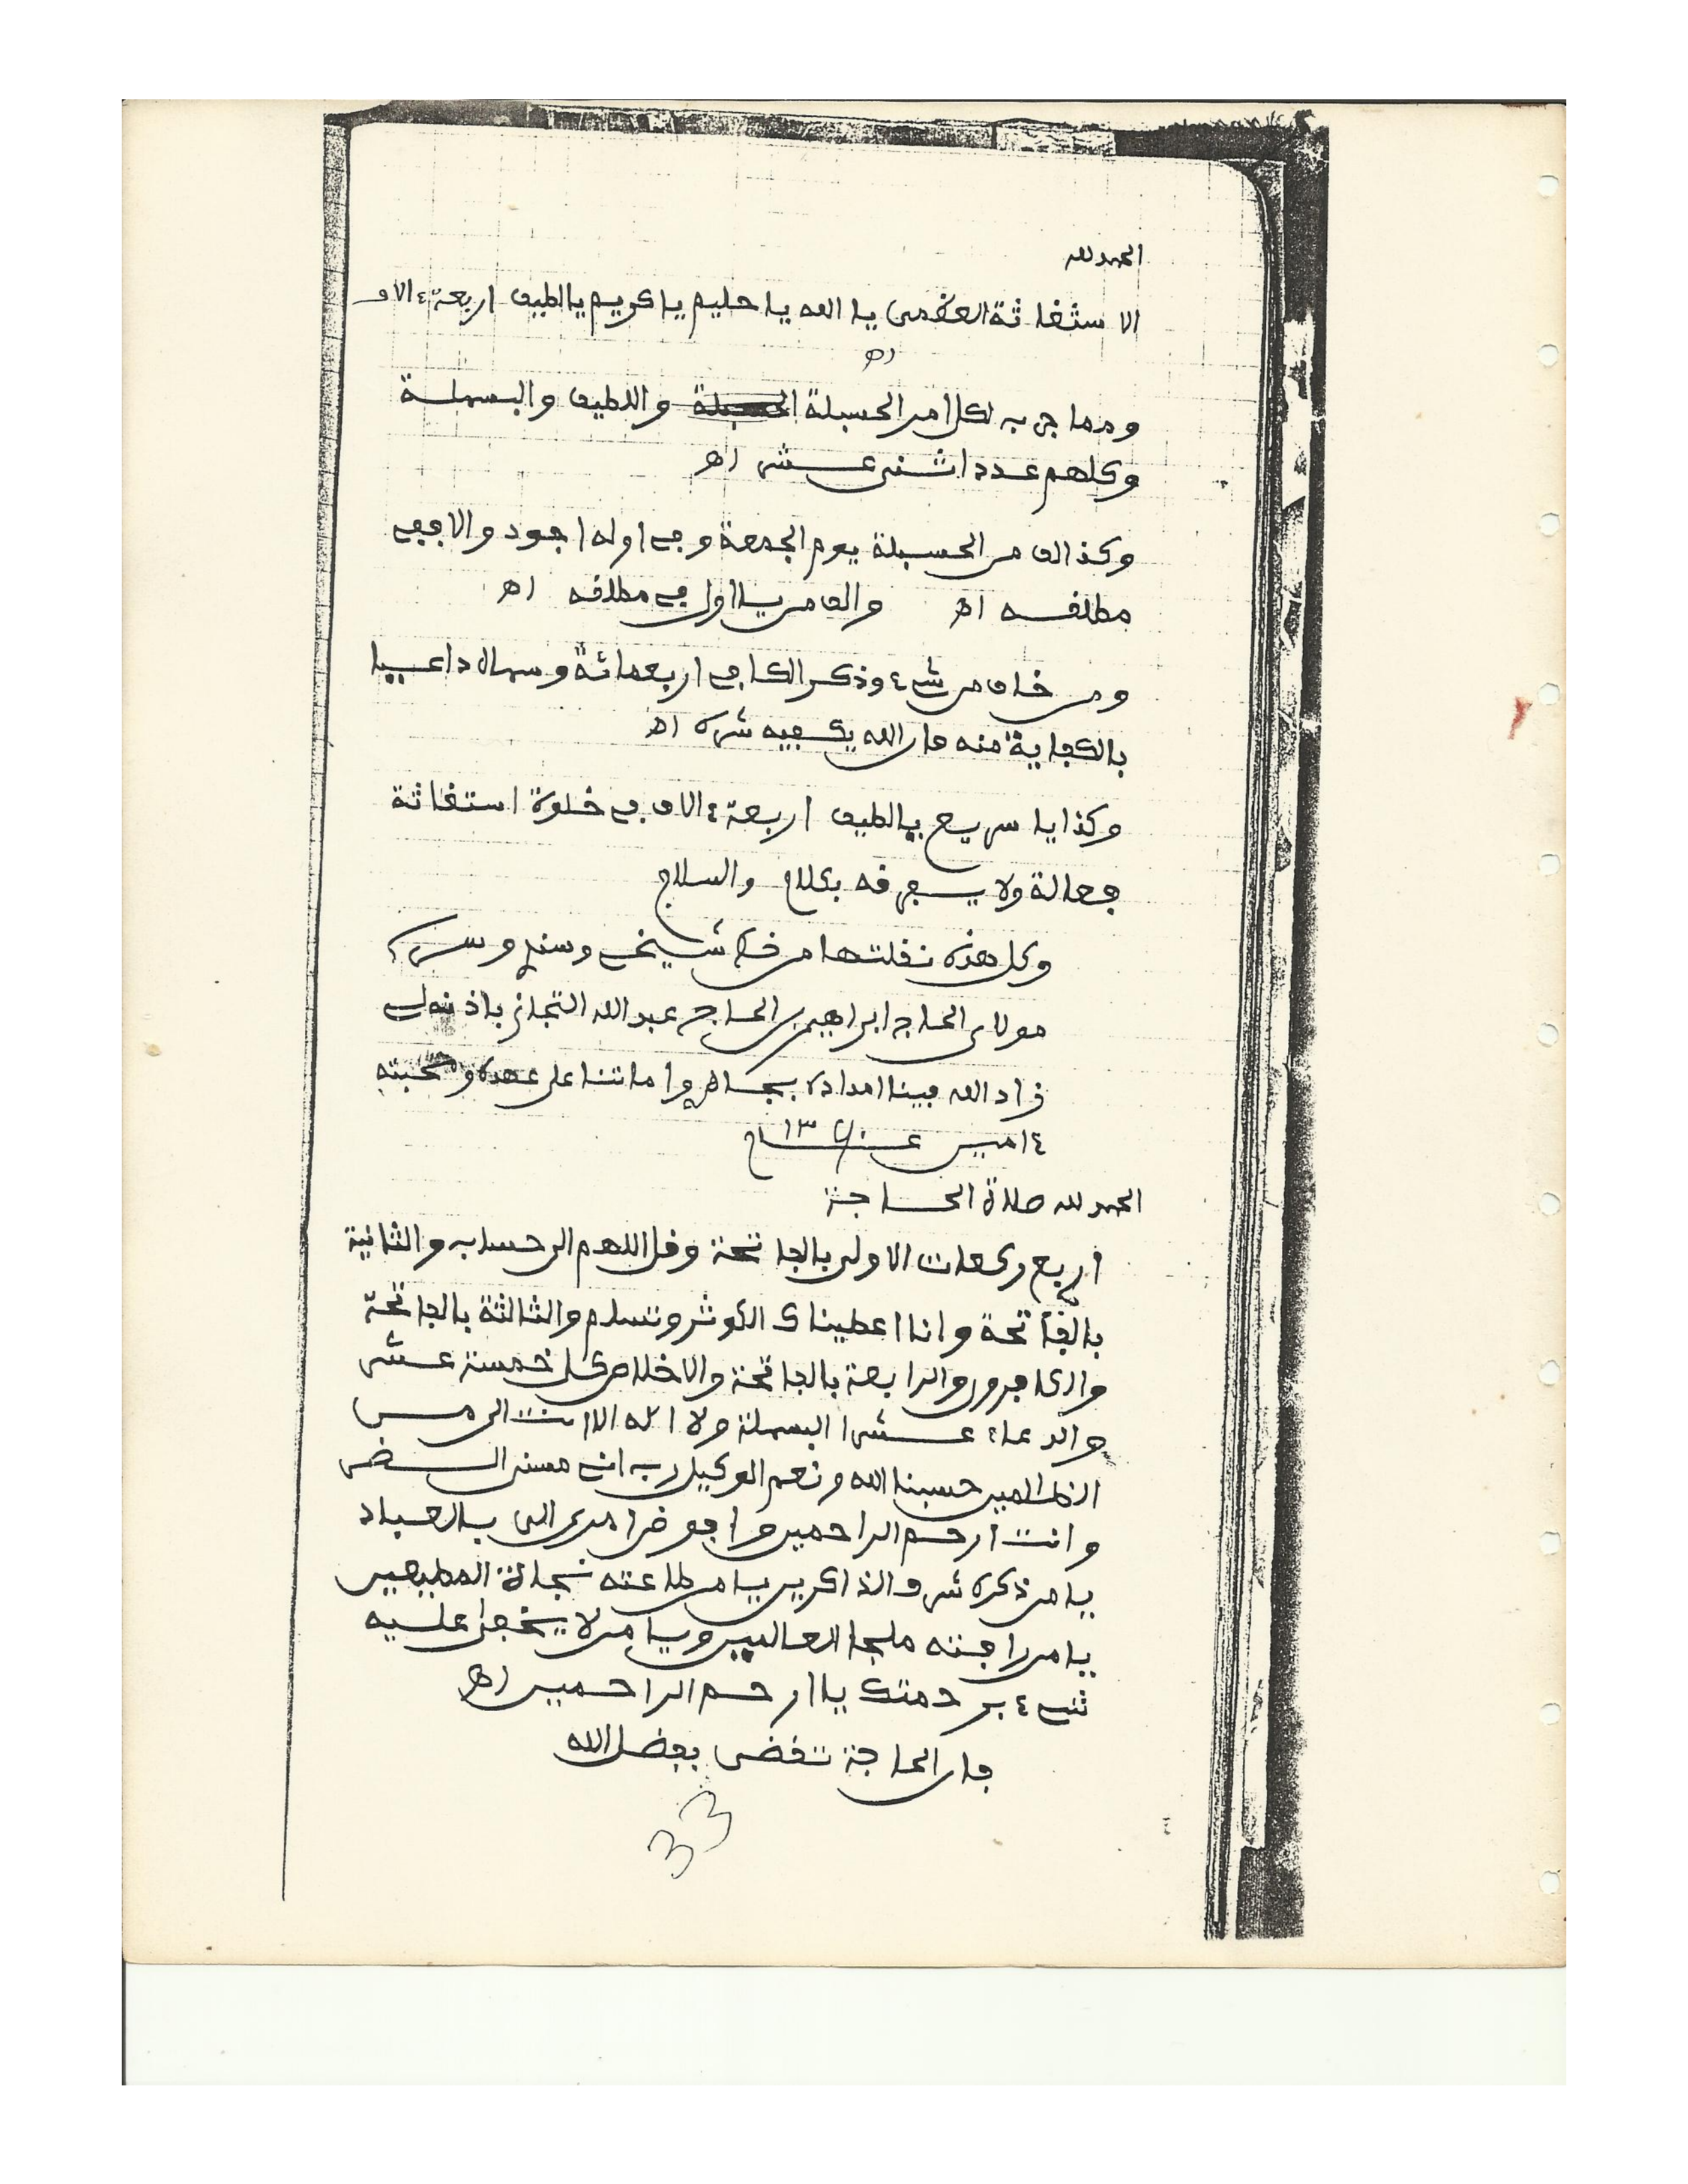 الحمد لله
الاستغاثة العظمى يا الله يا حليم يا كريم يا لطيف اربعة ٤ الاف
اه
ومما جرب لكل امر الحسبلة واللطيف والبسملة
وكلهم عدد اثنى عشر اه
وكذا الف من الحسبلة يوم الجمعة وفي اوله اجود والا ففي
مطلقه اه والف من يا اول في مطلقه اه
ومن خاف من شيء وذكر الكافي اربعمائة وسماه داعيا
بالكفاية منه فان الله يكفيه شره اه
وكذا يا سريع يا لطيف اربعة ٤ الاف في خلوة استغاثة
فعالة ولا يسع فه بكلام والسلام
وكل هذه نقلتها من خط شيخي وسندي وسري
مولاى الحاج ابراهيم بن الحاج عبد الله التجاني باذنه لي
زاد الله فينا امداده بجاه واماتنا على عهده ومحبته
امين عـام
الحمد لله صلاة الحاجة
اربع ركعات الاولى بالفاتحة وقل اللهم الى حساب والثانية
بالفاتحة وانا اعطيناك الكوثر وتسلم والثالثة بالفاتحة
والكافرون والرابعة بالفاتحة والاخلاص كل خمسة عشر
والدعاء عشرا البسملة ولا اله الا انت الى من
الظالمين حسبنا الله ونعم الوكيل رب اني مسني الضر
وانت ارحم الراحمين وافوض امرى الى بالعباد
يا من ذكره شرف الذاكرين يا من طاعته نجاة المطيعين
يا من رافته ملجا العالمين ويا من لا يخفى عليه
شيء برحمتك يا ارحم الراحمين اه
فان الحاجة تقضى بفضل الله
33